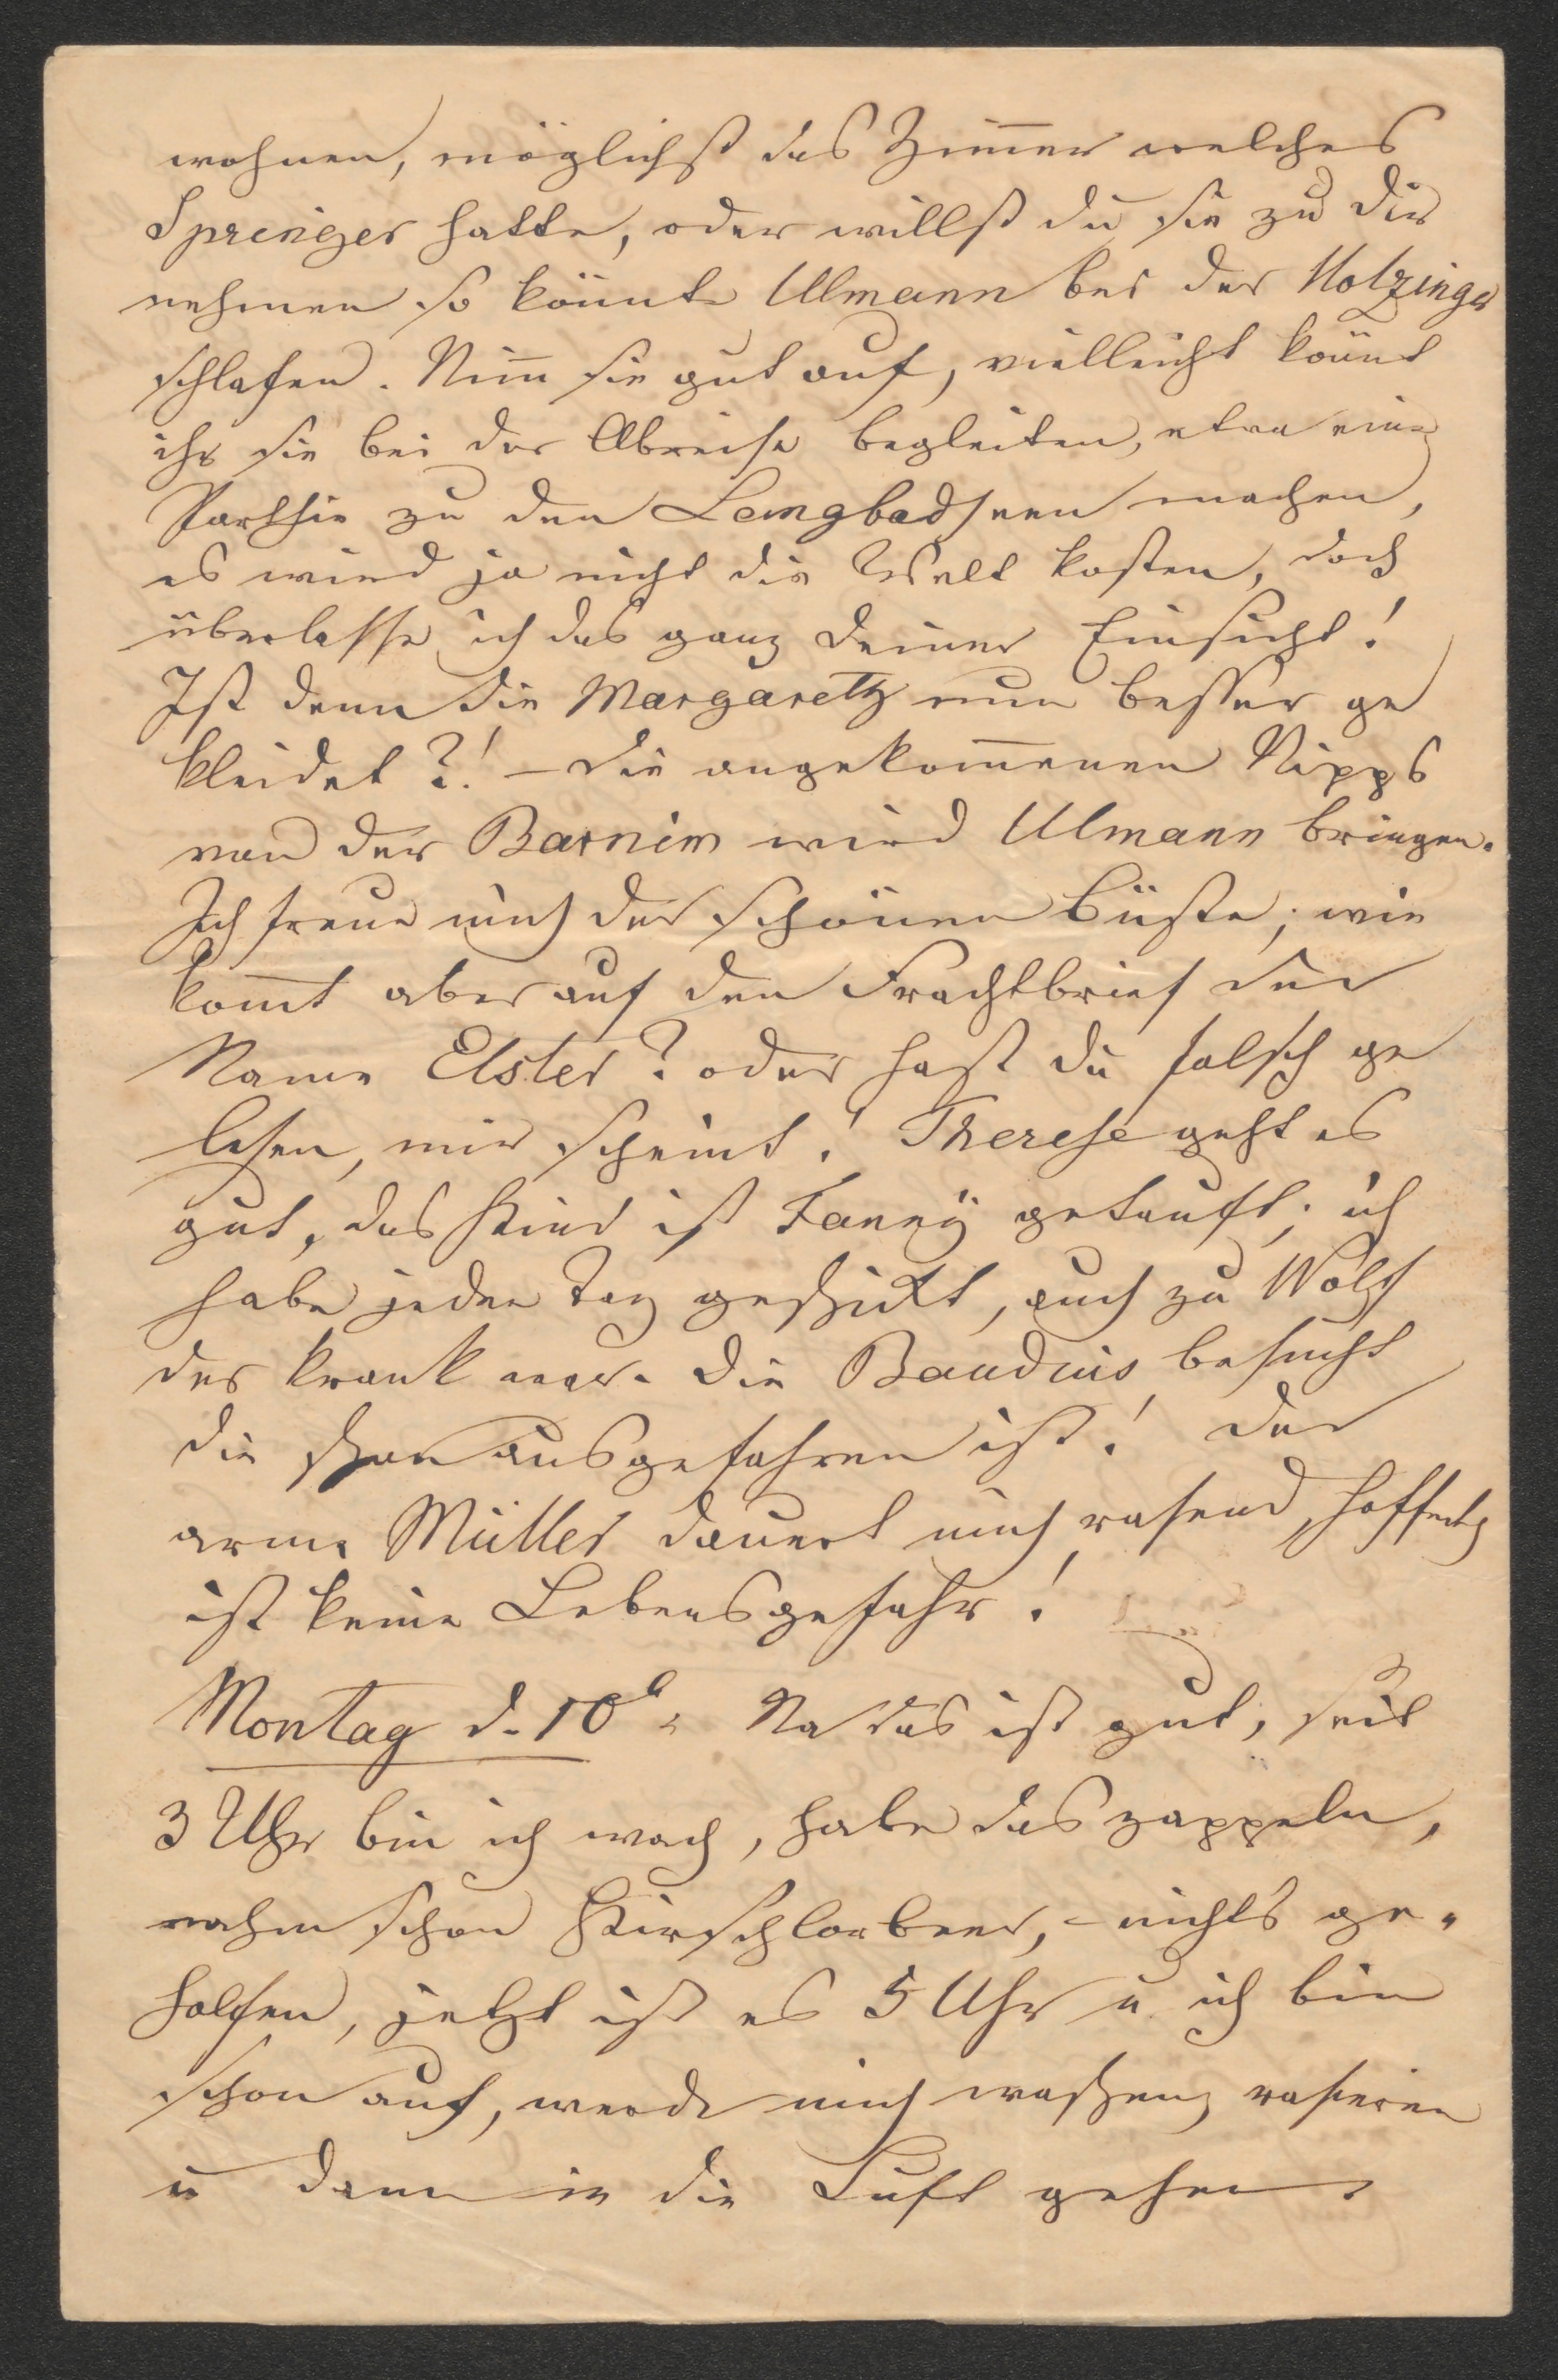 wohnen, möglichst das Zim̅er welches
Springer hatte, oder willst du sie zu dir
nehmen so könnte Ullmann bei der Holzinger
schlafen. Nim̅ sie gut auf, vielleicht könnt
ihr sie bei der Abreise begleiten, etwa eine
Parthie zu den Langbadseen machen,
es wird ja nicht die Welt kosten, doch
überlasse ich das ganz deiner Einsicht!
Ist denn die Margareth nun besser ge
kleidet?! – die angekom̅enen Nipps
von der Barnim wird Ullmann bringen.
Ich freue mich der schönen Büste; wie
kom̅t aber auf den Frachtbrief der
Name Elster? oder hast du falsch ge
lesen, mir scheint! Therese geht es
gut, das Kind ist Fanny getauft; ich
habe jeden Tag geschickt, auch zu Wolf
der krank war. die Baudius besucht
die schon ausgefahren ist! der
arme Müller dauert mich rasend, hoffentl
ist keine Lebensgefahr!
Montag d. 10t. Na das ist gut, seit
3 Uhr bin ich wach, habe das zappeln,
nahm schon Kirschlorbeer, – nichts ge-
holfen, jetzt ist es 5 Uhr u ich bin
schon auf, werde mich waschen, rasieren
u dann in die Luft gehen.